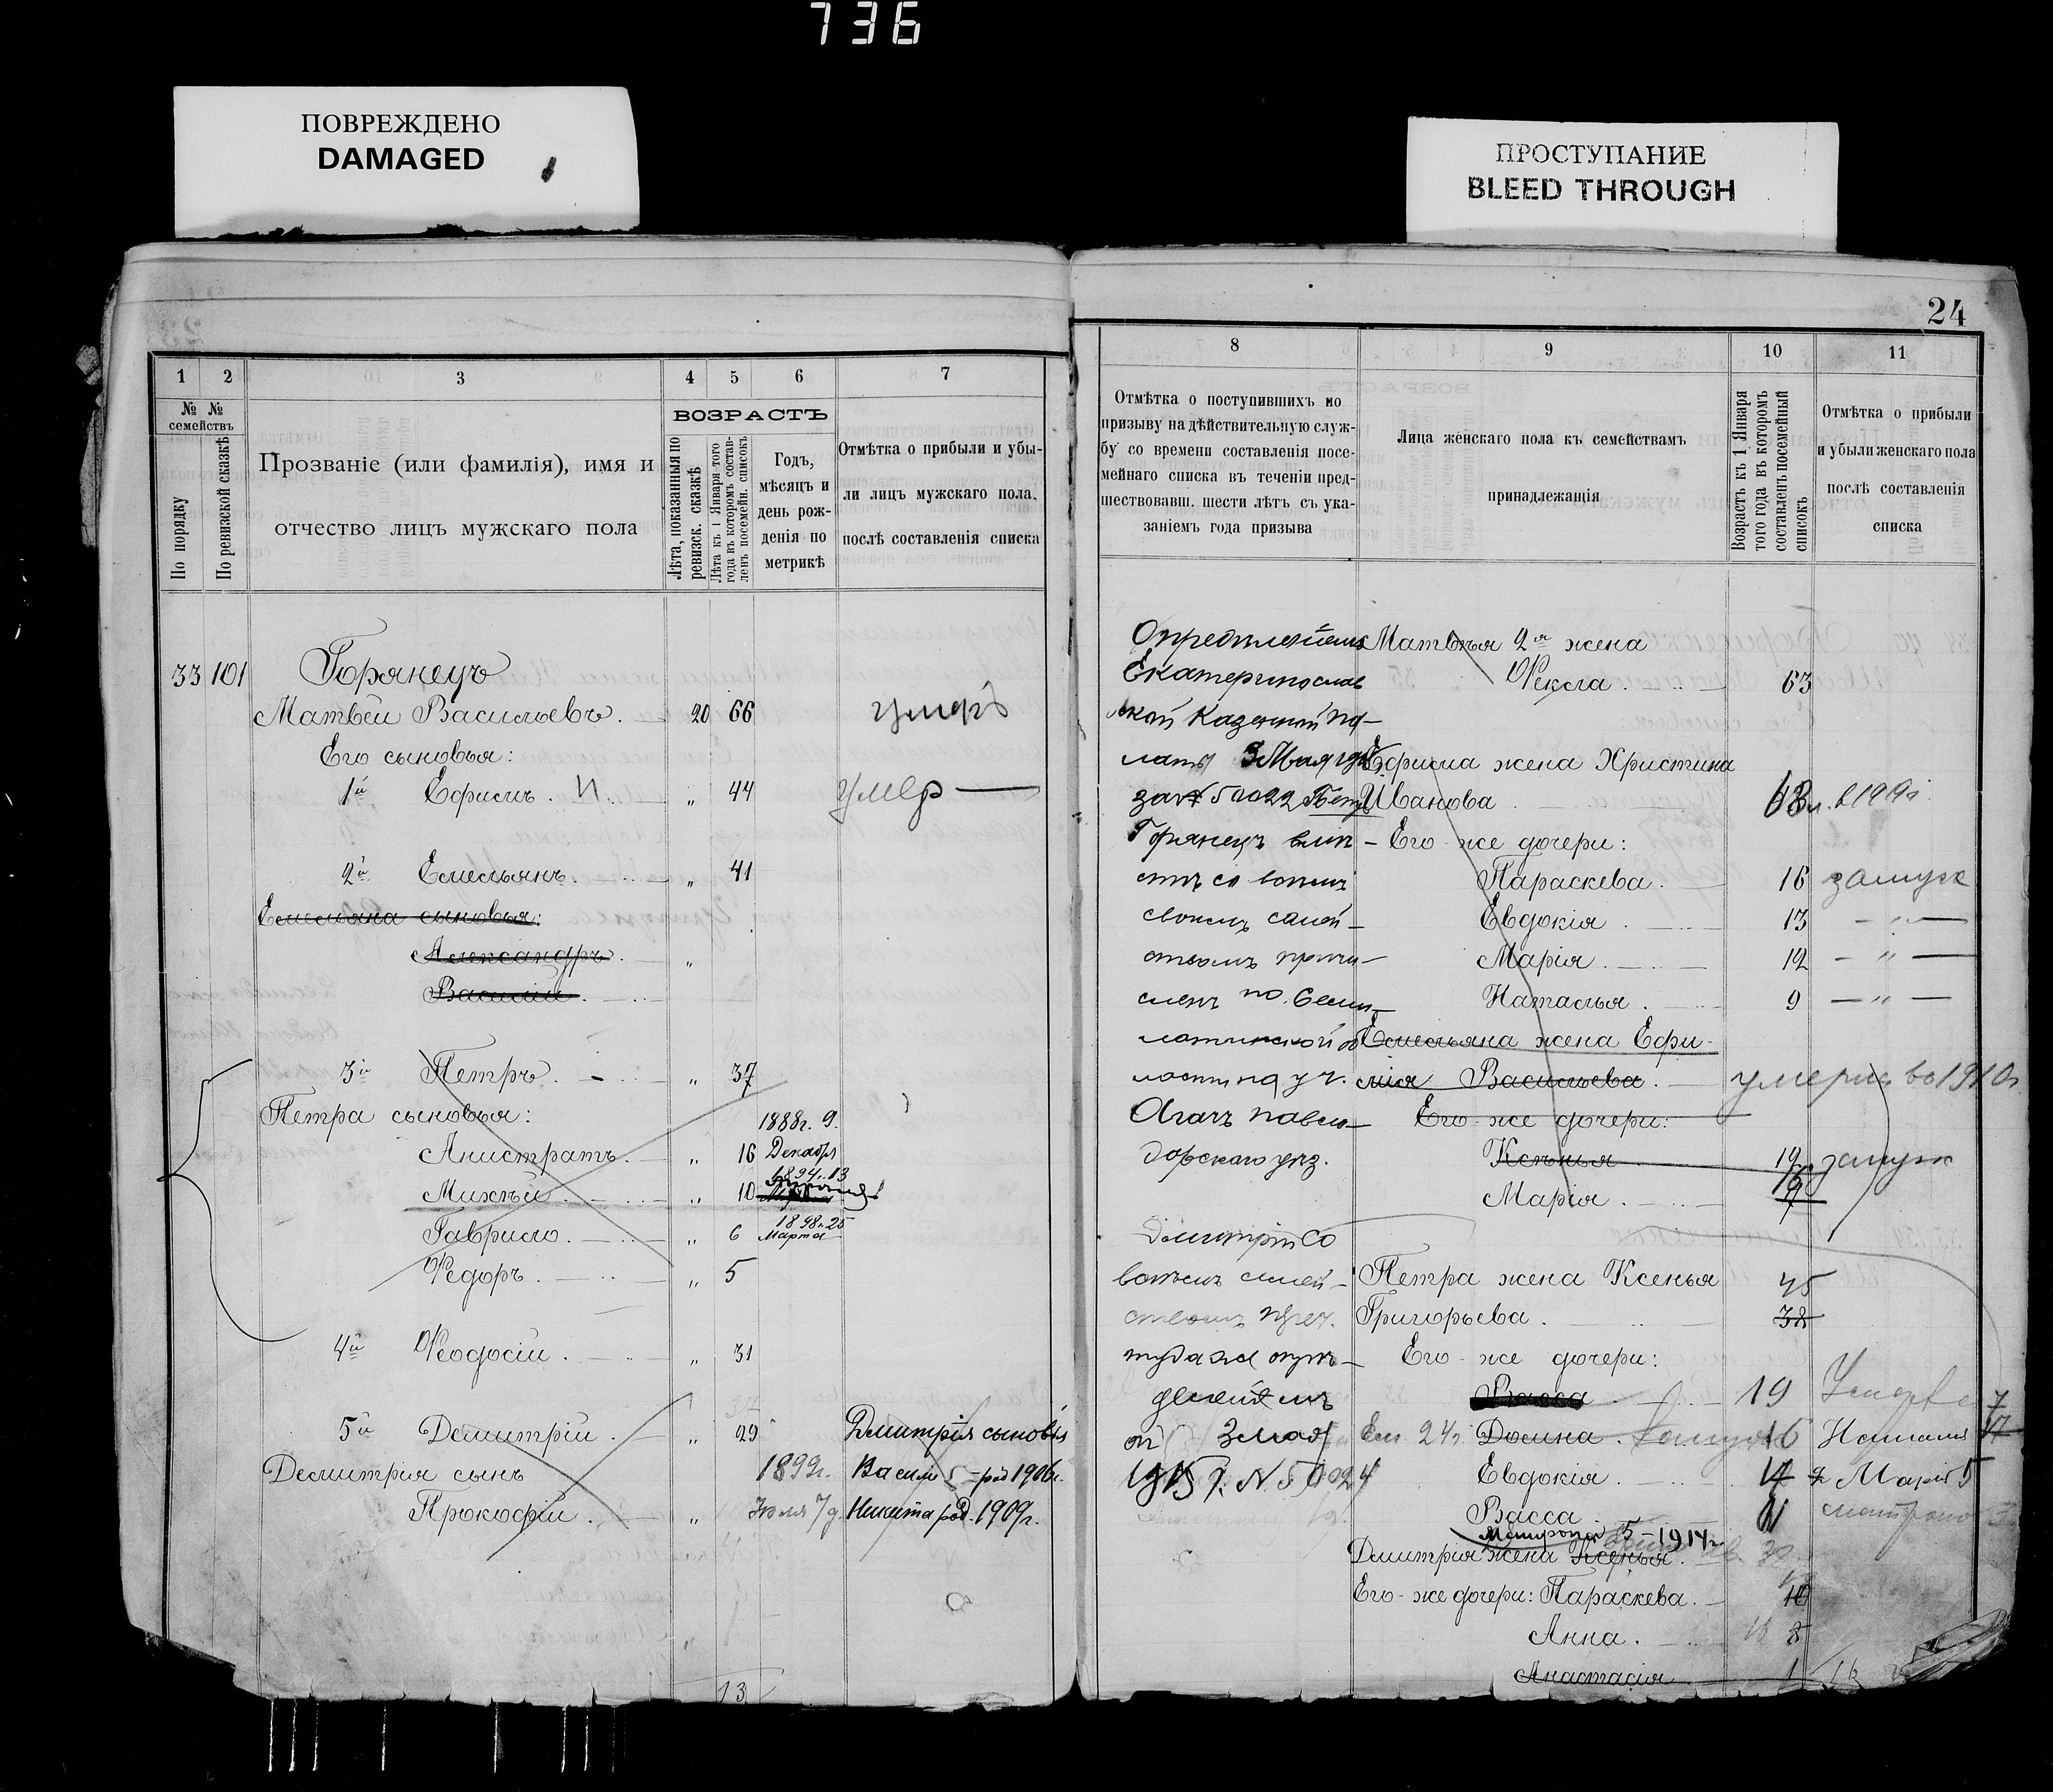 736
ПОВРЕЖДЕНО
DAMAGED
ПРОСТУПАНИЕ
BLEED THROUGH
24
1 2 3 4 5 6 7
№ №
семействъ
По порядку
По ревизской сказкѣ
Прозваніе (или фамилія), имя и
отчество лицъ мужскаго пола
ВОЗРАСТЪ
Лѣта, показанныя по
ревизск. сказкѣ
Лѣта къ 1 Января того
года въ которомъ состав-
ленъ посемейн. списокъ
Годъ,
мѣсяцъ и
день рож-
денія по
метрикѣ
Отмѣтка о прибыли и убы-
ли лицъ мужскаго пола,
послѣ составленія списка
33 101 Горянецъ
Матвѣй Васильевъ. 20 66 умеръ
Его сыновья:
1й Ефимъ. „ 44 умер —
2й Емельянъ. „ 41
Емельяна сыновья:
Александръ. „
Василій.
3й Петръ. „ 37
Петра сыновья:
1888г. 9.
Анистратъ. „ 16 Декабря
1894. 13
Михѣй. „ 10
1898г. 25
Гаврило. „ 6 Марта
Ѳедоръ. „ 5
4й Ѳеодосій. „ 31
37
5й Демитрій. „ 29 Дмитрія сыновья
Демитрія сынъ 1899г. Василій род 1906г.
Прокофій. „ Іюля 7д. Никита род. 1909г.
13
8 9 10 11
Отмѣтка о поступившихъ по
призыву на дѣйствительную служ-
бу со времени составленія посе-
мейнаго списка въ теченіи пред-
шествовавш. шести лѣтъ съ ука-
заніемъ года призыва
Лица женскаго пола къ семействамъ
принадлежащія
Возрастъ къ 1 Января
того года въ которомъ
составленъ посемейный
списокъ
Отмѣтка о прибыли
и убыли женскаго пола
послѣ составленія
списка
Опредѣленіемъ
Екатеринослав
ской Казенной Па-
латы 3 Мая
за № 50022 Петръ
Горянецъ вмѣ-
стѣ со всѣмъ
своимъ семей-
ствомъ причи-
сленъ по
Павло-
дарскаго уѣз.
Дмитрій со
всѣмъ семей-
ствомъ
туда же опре-
дѣленіемъ
от 3 мая
1915 г. № 50024
Матвѣя 2я жена
Ѳекла. 63
Ефима жена Христина
Иванова
Его-же дочери:
Параскева. 16 замуж
Евдокія. 13 — „ —
Марія. 12 — „ —
Наталья. 9 — „ —
Емельяна жена Ефи-
мія Васильева. умерла въ 1910г
Его-же дочери:
Ксенья 19 замуж
Марія.
Петра жена Ксенья 45
Григорьева. 38
Его-же дочери:
Васса 19
Домна. замуж 16 Наталія
Евдокія. 14 Марія 5
Васса. 11
Матрона 5-1914г
Дмитрія жена Ксенья.
Его-же дочери: Параскева. 10
Анна. 8
Анастасія 1